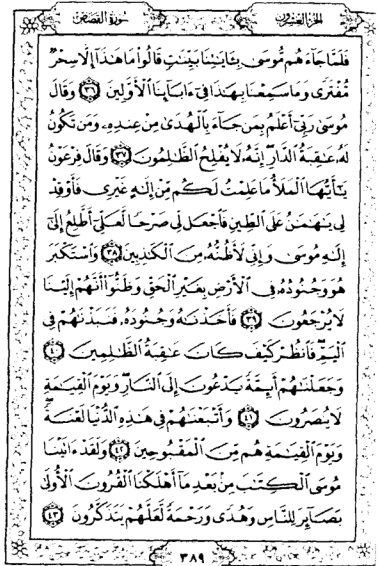 الجزء العشرون سورة القصص
فَلَمَّا جَآءَهُم مُّوسَىٰ بِـَٔايَٰتِنَا بَيِّنَٰتٍ قَالُوا۟ مَا هَٰذَآ إِلَّا سِحْرٌ
مُّفْتَرًى وَمَا سَمِعْنَا بِهَٰذَا فِىٓ ءَابَآئِنَا ٱلْأَوَّلِينَ ﴿٣٦﴾ وَقَالَ
مُوسَىٰ رَبِّىٓ أَعْلَمُ بِمَن جَآءَ بِٱلْهُدَىٰ مِنْ عِندِهِۦ وَمَن تَكُونُ
لَهُۥ عَٰقِبَةُ ٱلدَّارِ إِنَّهُۥ لَا يُفْلِحُ ٱلظَّٰلِمُونَ ﴿٣٧﴾ وَقَالَ فِرْعَوْنُ
يَٰٓأَيُّهَا ٱلْمَلَأُ مَا عَلِمْتُ لَكُم مِّنْ إِلَٰهٍ غَيْرِى فَأَوْقِدْ
لِى يَٰهَٰمَٰنُ عَلَى ٱلطِّينِ فَٱجْعَل لِّى صَرْحًا لَّعَلِّىٓ أَطَّلِعُ إِلَىٰٓ
إِلَٰهِ مُوسَىٰ وَإِنِّى لَأَظُنُّهُۥ مِنَ ٱلْكَٰذِبِينَ ﴿٣٨﴾ وَٱسْتَكْبَرَ
هُوَ وَجُنُودُهُۥ فِى ٱلْأَرْضِ بِغَيْرِ ٱلْحَقِّ وَظَنُّوٓا۟ أَنَّهُمْ إِلَيْنَا
لَا يُرْجَعُونَ ﴿٣٩﴾ فَأَخَذْنَٰهُ وَجُنُودَهُۥ فَنَبَذْنَٰهُمْ فِى
ٱلْيَمِّ فَٱنظُرْ كَيْفَ كَانَ عَٰقِبَةُ ٱلظَّٰلِمِينَ ﴿٤٠﴾
وَجَعَلْنَٰهُمْ أَئِمَّةً يَدْعُونَ إِلَى ٱلنَّارِ وَيَوْمَ ٱلْقِيَٰمَةِ
لَا يُنصَرُونَ ﴿٤١﴾ وَأَتْبَعْنَٰهُمْ فِى هَٰذِهِ ٱلدُّنْيَا لَعْنَةً
وَيَوْمَ ٱلْقِيَٰمَةِ هُم مِّنَ ٱلْمَقْبُوحِينَ ﴿٤٢﴾ وَلَقَدْ ءَاتَيْنَا
مُوسَى ٱلْكِتَٰبَ مِنۢ بَعْدِ مَآ أَهْلَكْنَا ٱلْقُرُونَ ٱلْأُولَىٰ
بَصَآئِرَ لِلنَّاسِ وَهُدًى وَرَحْمَةً لَّعَلَّهُمْ يَتَذَكَّرُونَ ﴿٤٣﴾
٣٨٩